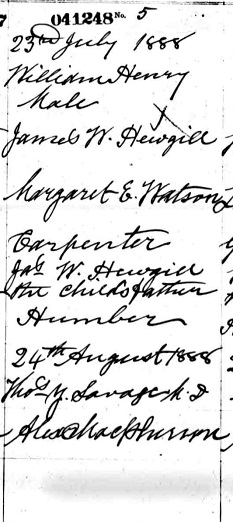 041248 No. 5
23rd July 1888
William Henry
Male
James W. Hewgill
Margaret E. Watson
Carpenter
Jas W. Hewgill
the child's father
Humber
24th August 1888
Thos Y. Savage M.D
Alex MacPherson